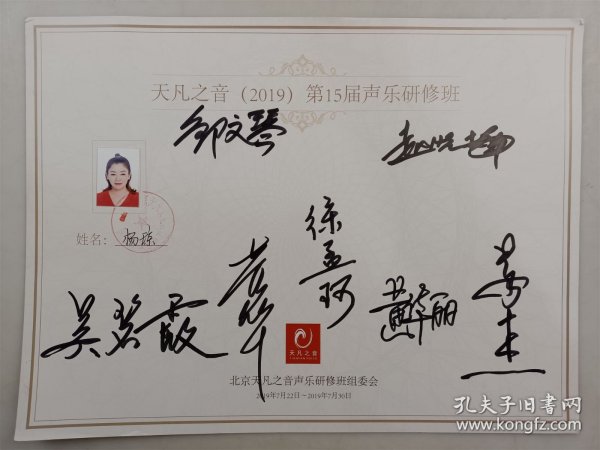 天凡之音（2019）第15届声乐研修班
邹文琴
姓名：杨琼
徐孟珂
吴碧霞
黄华丽
天凡之音
北京天凡之音声乐研修班组委会
2019年7月22日－2019年7月30日
孔夫子旧书网
www.kongfz.com